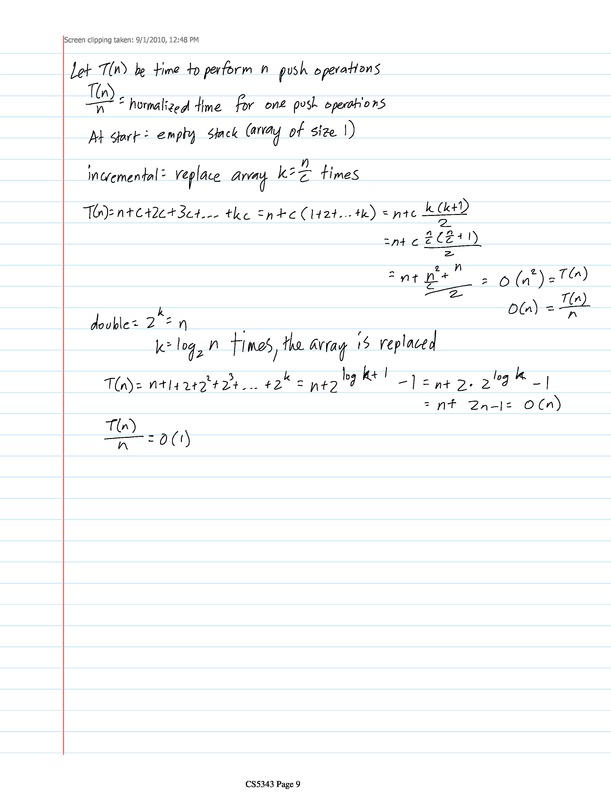 Screen clipping taken: 9/1/2010, 12:48 PM
Let T(n) be time to perform n push operations
T(n)/n = normalized time for one push operations
At start: empty stack (array of size 1)
incremental: replace array k = n/c times
T(n) = n+c+2c+3c+.... +kc = n+c (1+2+...+k) = n+c k(k+1)/2
= n+c n/c (n/c + 1)/2
= n + (n²/c + n)/2 = O(n²) = T(n)
O(n) = T(n)/n
double = 2^k = n
k = log₂ n times, the array is replaced
T(n) = n+1+2+2²+2³+... +2^k = n+2^(log k+1) -1 = n+2·2^(log k) -1
= n+ 2n-1 = O(n)
T(n)/n = O(1)
CS5343 Page 9